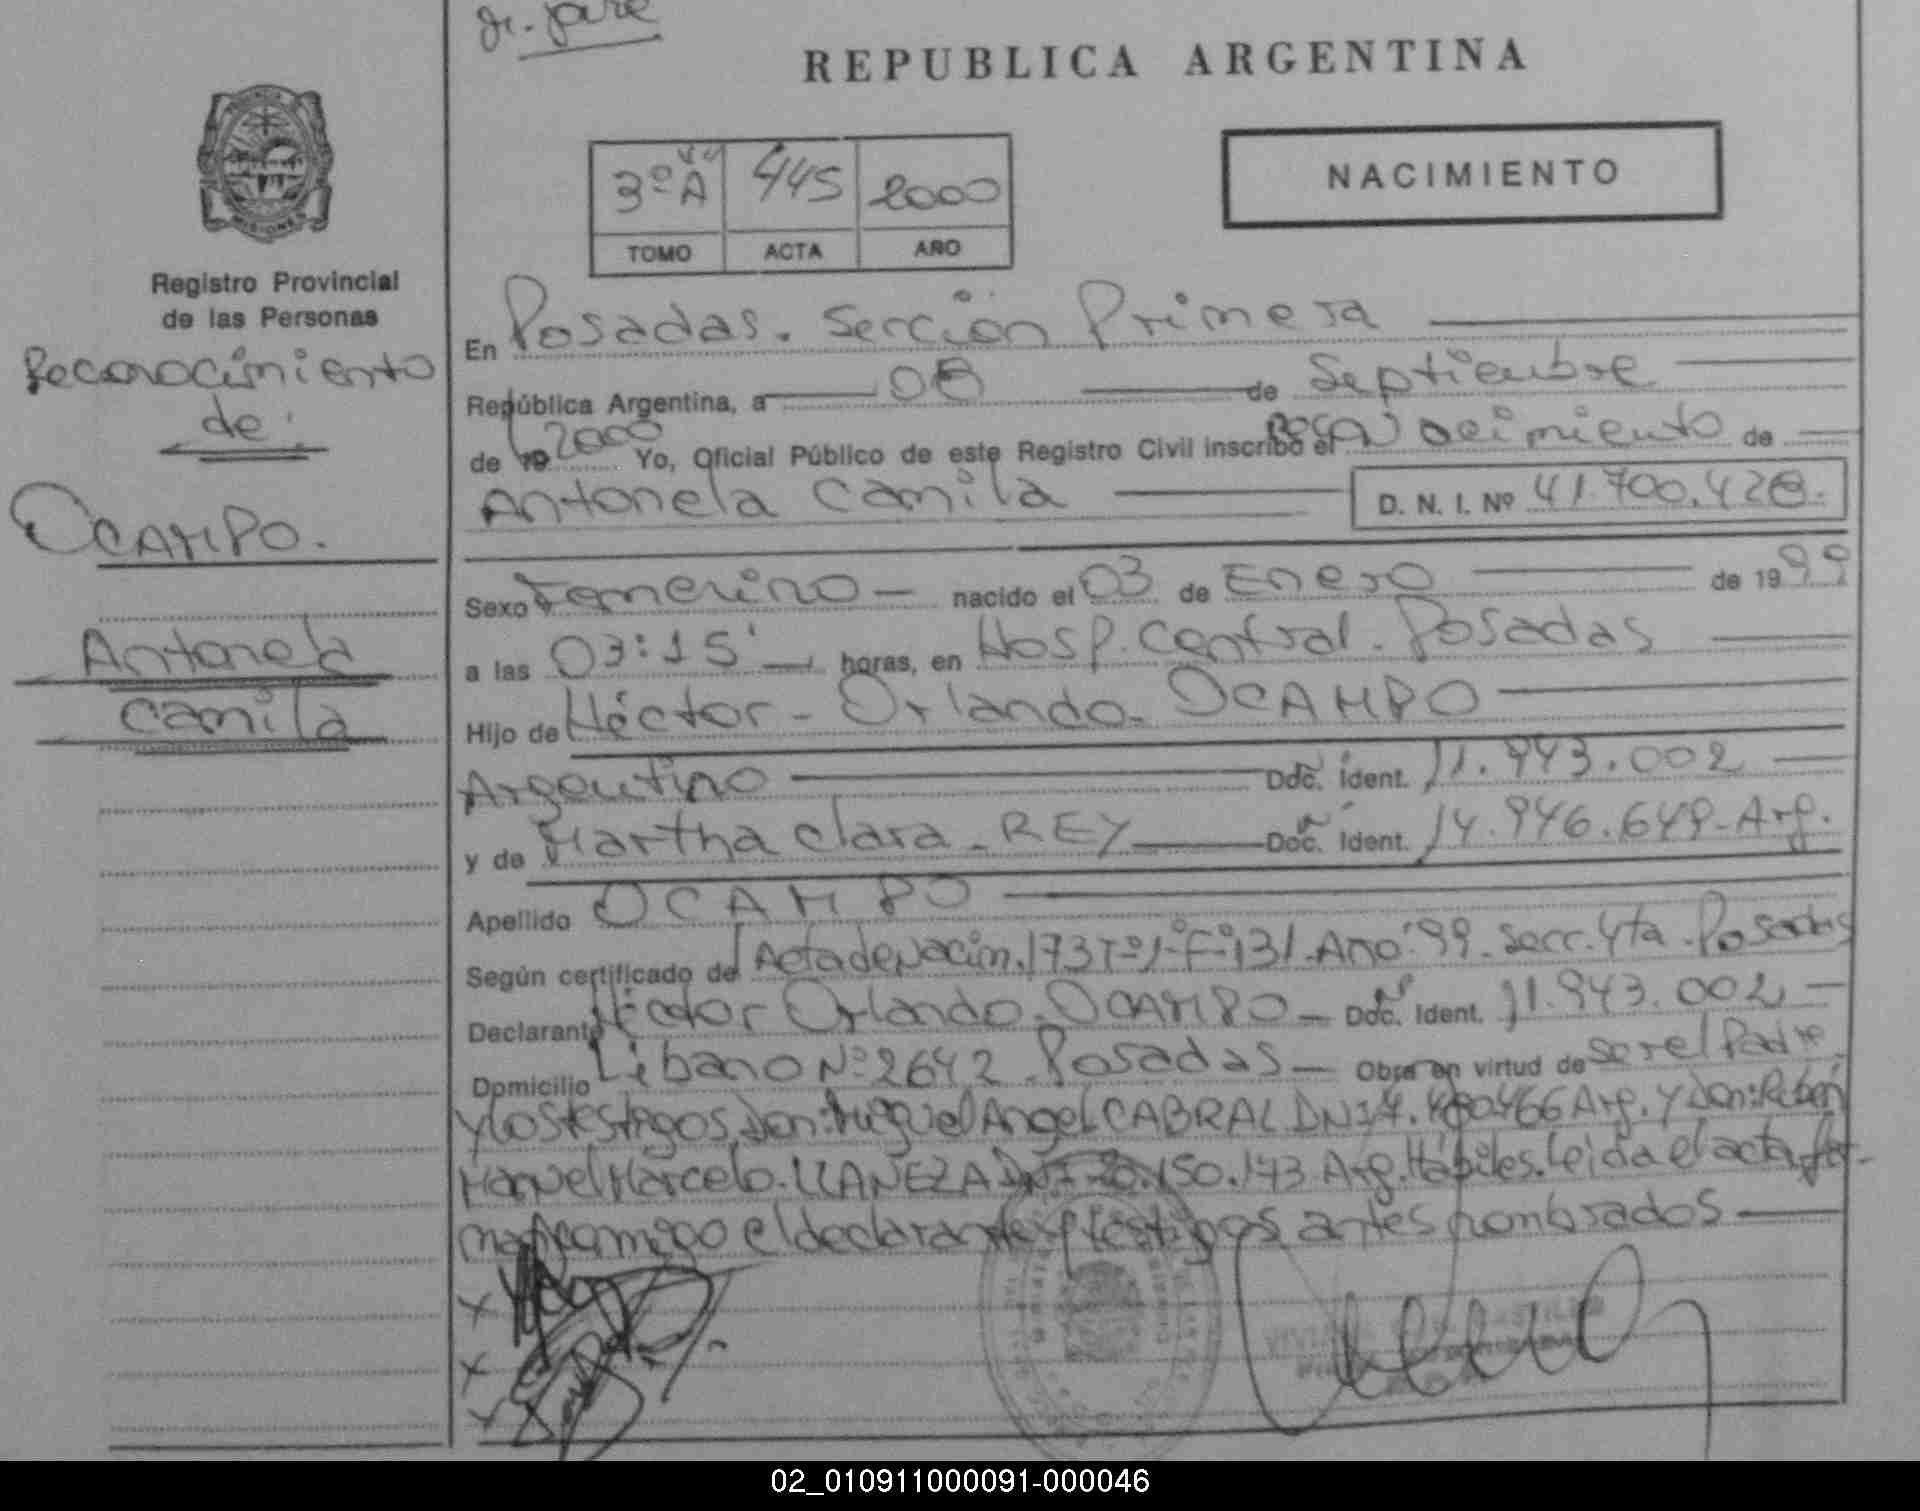 REPUBLICA ARGENTINA
3º A 445 2000
TOMO ACTA AÑO
NACIMIENTO
MISIONES
Registro Provincial
de las Personas
Reconocimiento
de:
OCAMPO.
Antonela
Camila
En Posadas. Sección Primera
República Argentina, a 08 de Septiembre
de 19 2000 Yo, Oficial Público de este Registro Civil inscribo el Nacimiento de
Antonela Camila D. N. I. Nº 41.700.428.
Sexo Femenino nacido el 03 de Enero de 1999
a las 03:15' horas, en Hosp. Central. Posadas
Hijo de Héctor - Orlando - OCAMPO
Argentino Doc. Ident. 11.943.002
y de Martha Clara - REY Doc. Ident. 14.946.649 - Arg.
Apellido OCAMPO
Según certificado de Acta de Nacim. 173 Tº 1-Fº 131. Año '99. Secc. 4ta. Posadas
Declarante Héctor Orlando - OCAMPO - Doc. Ident. 11.943.002
Domicilio Libano Nº 2642 Posadas Obra en virtud de ser el Padre
y los testigos, Don: Miguel Angel CABRAL Arg. y Don: Rubén
Manuel Marcelo. LLANEZA DNI 20.150.143 Arg. Hábiles. Leida el acta, fir-
man conmigo el declarante y testigos antes nombrados
02_010911000091-000046